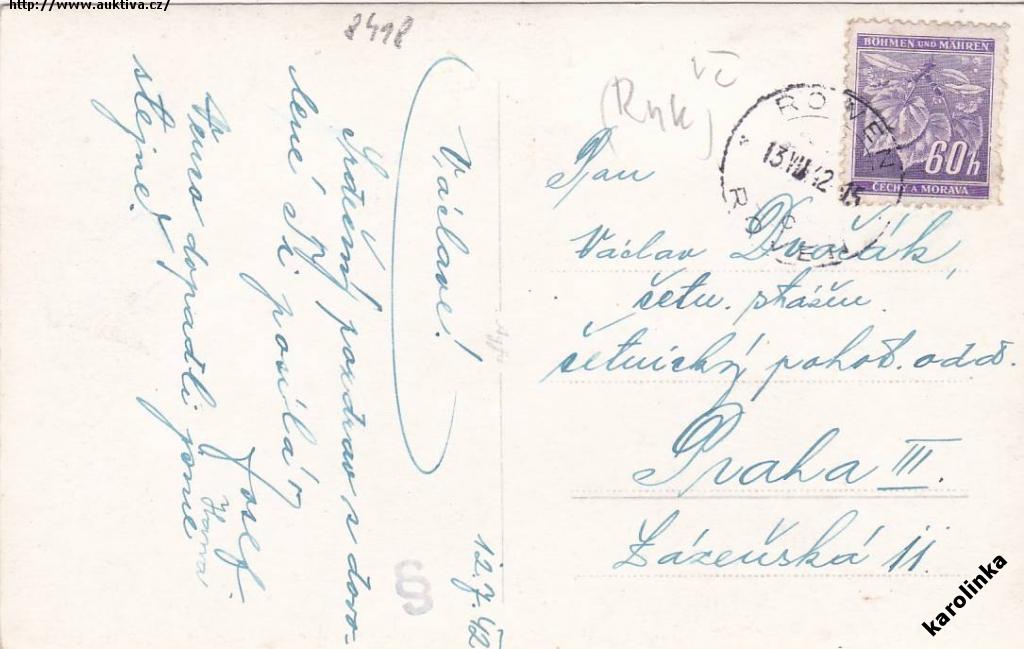 http://www.auktiva.cz/
8418
12.7.42
Václave!
Srdečný pozdrav s dovo-
lené Ti posílá
Josef
Jemu dopadli jsme
stejně!
vč
(Rnk)
BÖHMEN UND MÄHREN
60h
ČECHY A MORAVA
ROWEN
13.VII.42-15
ROVEŇ
Pan
Václav Dvořák,
četn. strážm.
četnický pohot. odd.
Praha III.
Lázeňská 11.
karolinka